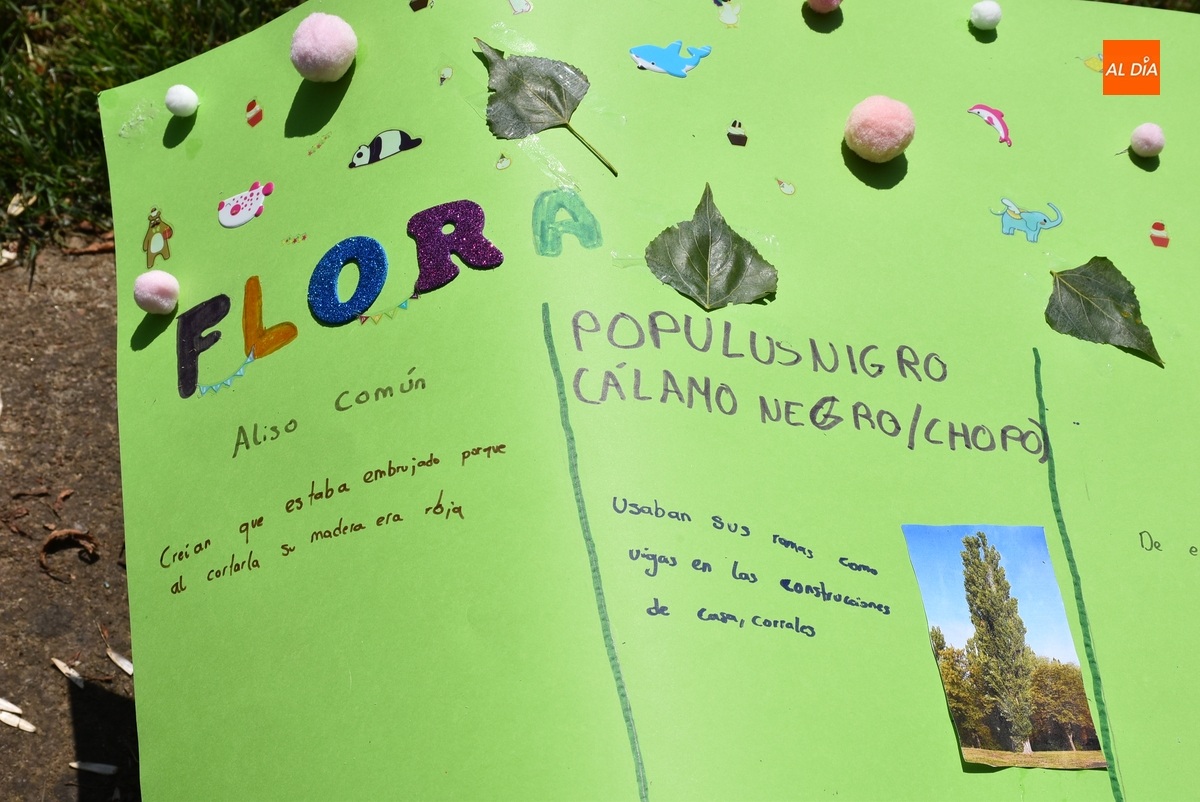 AL DÍA
FLORA
Aliso común
Creían que estaba embrujado porque
al cortarla su madera era roja
POPULUS NIGRO
CÁLAMO NEGRO/(CHOPO)
Usaban sus ramas como
vigas en las construcciones
de casa, corrales
De e